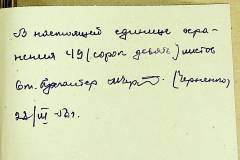 В настоящей единице хра-
нения 49 (сорок девять) листов
Ст. бухгалтер (Черненко)
22/III